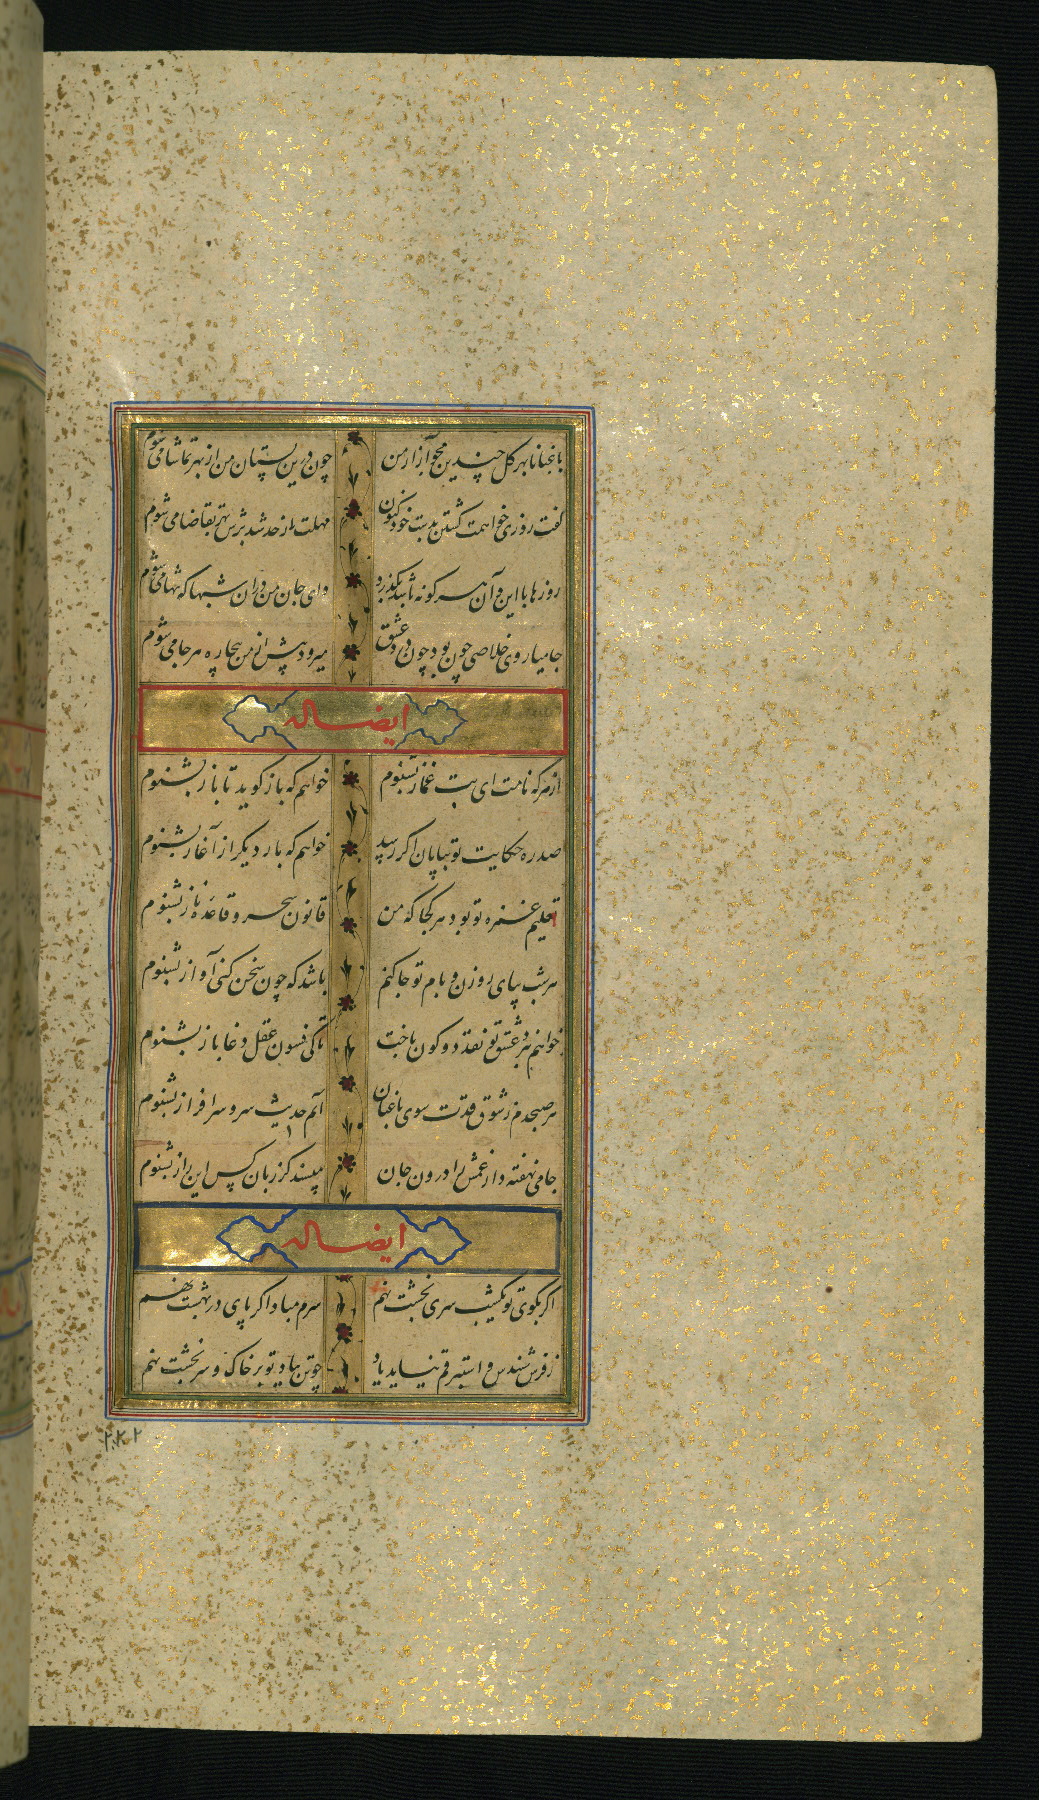 باغبانا بهر گل چندین مجو آزار من چون درین بستان من از بهر تماشا می شوم
گفت روزی خواهمت کشتن بدست خود کنون مهلت از حد شد برش بهر تقاضا می شوم
روزها با این و آن هر گونه باشد بگذرد وای جان من در آن شبها که تنها می شوم
جامیا روی خلاصی چون بود چون درد عشق میرود پیش از من بیچاره هر جا می شوم
ایضا له
از هر که نامت ای بت غماز بشنوم خواهم که باز گوید تا باز بشنوم
صد ره حکایت تو بپایان اگر رسد خواهم که بار دیگر از آغاز بشنوم
تعلیم غمزه تو بود هر کجا که من قانون سحر و قاعده ناز بشنوم
هر شب بپای روزن و بام تو جا کنم باشد که چون سخن کنی آواز بشنوم
خواهم بنرد عشق تو نقد دو کون باخت تا کی فسون عقل دغا باز بشنوم
هر صبحدم ز شوق قدت سوی باغبان آیم حدیث سرو سرافراز بشنوم
جامی نهفته دار غمش را درون جان مپسند کز زبان کس این راز بشنوم
ایضا له
اگر بکوی تو یکشب سری بخشت نهم سرم مباد اگر پای در بهشت نهم
ز فرش سندس و استبرقم نیاید یاد چو تن بیاد تو بر خاک و سر بخشت نهم